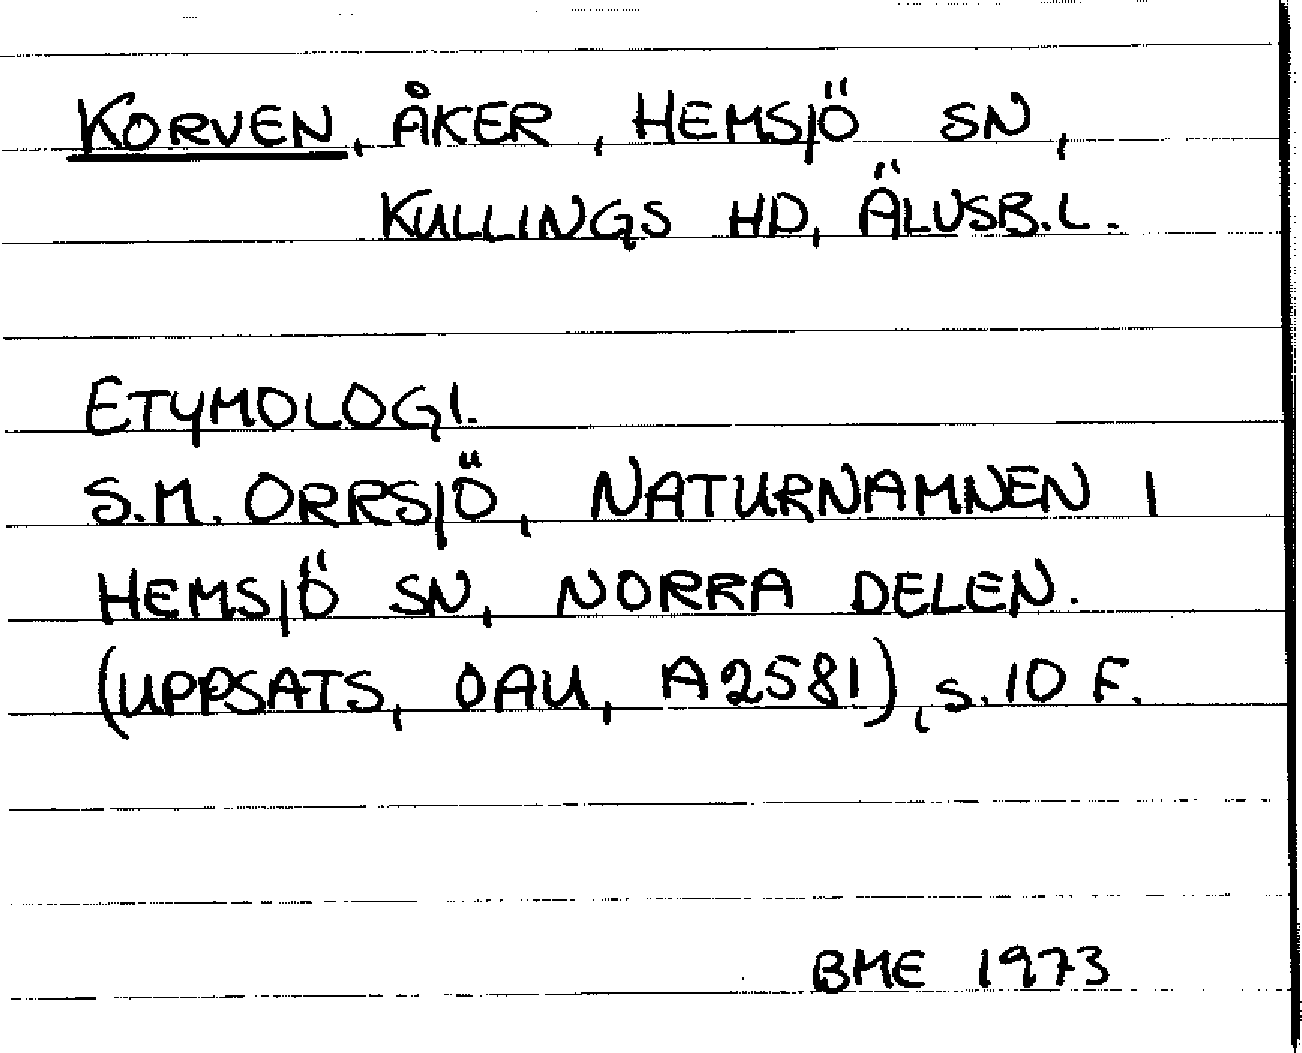 KORVEN, ÅKER, HEMSJÖ SN,
KULLINGS HD, ÄLVSB.L.
ETYMOLOGI.
S.M. ORRSJÖ, NATURNAMNEN I
HEMSJÖ SN, NORRA DELEN.
(UPPSATS, OAU, A2581), S.10 F.
BME 1973